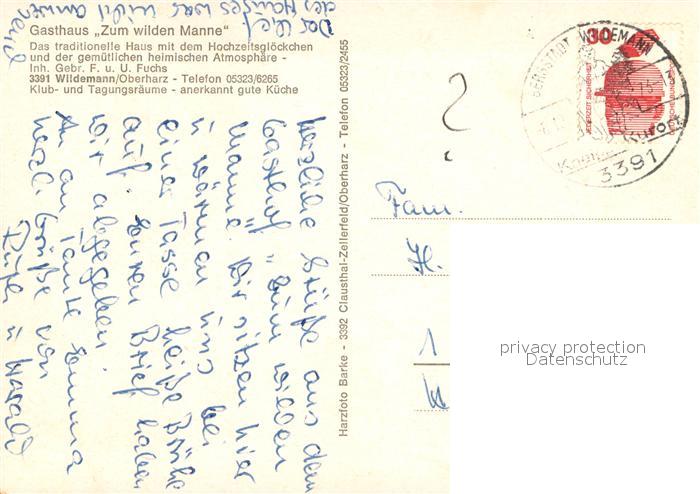 Das Chef
des Hauses war nicht anwesend
Gasthaus „Zum wilden Manne"
Das traditionelle Haus mit dem Hochzeitsglöckchen
und der gemütlichen heimischen Atmosphäre -
Inh. Gebr. F. u. U. Fuchs
3391 Wildemann/Oberharz - Telefon 05323/6265
Klub- und Tagungsräume - anerkannt gute Küche
Herzliche Grüße aus dem
Gasthof „Zum wilden
Manne". Wir sitzen hier
u wärmen uns bei
einer Tasse heiße Brühe
auf. Euren Brief haben
wir abgegeben.
An Tante Emma
herzl. Grüße von
u Harald
Harzfoto Barke - 3392 Clausthal-Zellerfeld/Oberharz - Telefon 05323/2455
?
30
JEDERZEIT SICHERHEIT
BERGSTADT WILDEMANN
Kurort
3391
Fam.
H.
1
privacy protection
Datenschutz